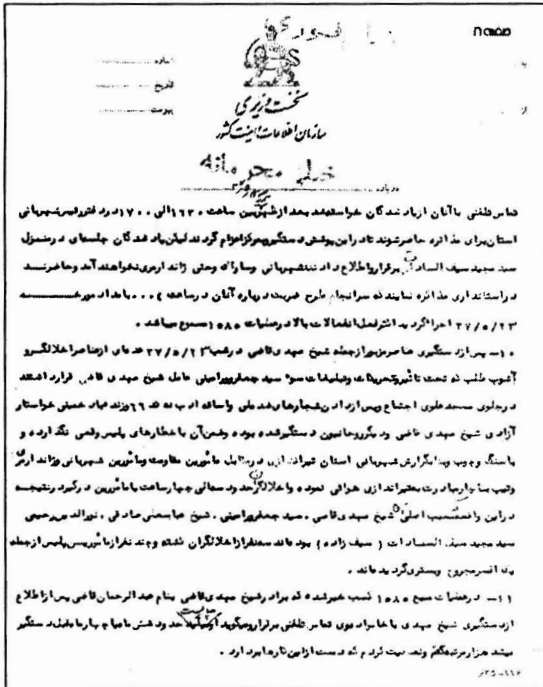 خیلی فوری
شماره
تاریخ
پیوست
نخست وزیری
سازمان اطلاعات و امنیت کشور
خیلی محرمانه
درباره
تماس تلفنی با آنان از یاد شدگان خواسته‌شد بعد از ظهر بین ساعت ۱۶۳۰ الی ۱۷۰۰ در دفتر رئیس شهربانی
استان برای مذاکره حاضر شوند تا در این پوشش دستگیر و بمرکز اعزام گردند لیکن یاد شدگان جلسه‌ای در منزل
سید مجید سیف السادات برقرار و اطلاع دادند بشهربانی و ساواک و حتی ژاندارمری نخواهند آمد و حاضرند
در استانداری مذاکره نمایند که سرانجام طرح ضربت درباره آنان در ساعت بامداد مورخه
۲۷/۵/۲۳ اجرا گردید
۱۰- پس از دستگیری عناصر مزبور از جمله شیخ مهدی قاضی در شب ۲۷/۵/۲۳ عده‌ای از عناصر اخلالگر و
آشوب طلب که تحت تاثیر و تحریکات و تبلیغات سوء سید جعفر و امینی عامل شیخ مهدی قاضی قرار داشتند
در جلوی مسجد علوی اجتماع و پس از دادن شعارهای ضد ملی و اسائه ادب خواستار
آزادی شیخ مهدی قاضی و دیگر روحانیون دستگیر شده بوده و ضمن آن با خطارهای پلیس وقعی نگذارده و
با سنگ و چوب و بنا بگزارش شهربانی استان تیراندازی در مقابل مامورین مقاومت و مامورین شهربانی و ژاندارمری
و تیپ بناچار مبادرت بتیراندازی هوائی نموده و اخلالگران حدود چهار ساعت با مامورین درگیر در نتیجه
در این واقعه مسبب اصلی شیخ مهدی قاضی، سید جعفر و امینی، شیخ عباسعلی صادقی، نورالدین رحیمی
سید مجید سیف السادات (سیف زاده) بوده‌اند سه نفر از اخلالگران کشته و چند نفر از مامورین پلیس از جمله
یک افسر مجروح و بستری گردیده‌اند.
۱۱- در عملیات سمع ۱۰۸۵ کسب خبر شده که برادر شیخ مهدی قاضی بنام عبدالرحمن قاضی پس از اطلاع
از دستگیری شیخ مهدی با خانواده وی تماس تلفنی برقرار و میگوید حدود شش ماه یا چهار ماه قبل دستگیر
میشد هزار مرتبه گفتم و نصیحت کردم که دست از این کارها بردارد.